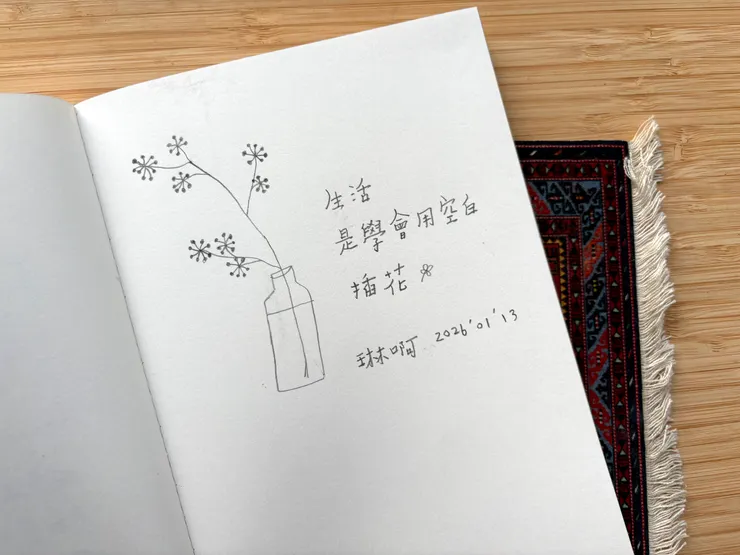 生活
是學會用空白
插花
琳啊 2026'01'13